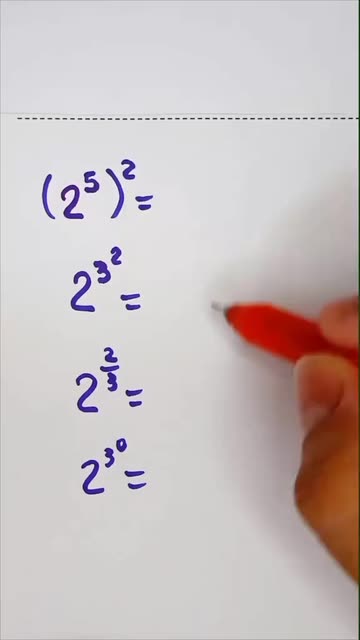 (2⁵)² =
2^3^2 =
2^(2/3) =
2^3^0 =